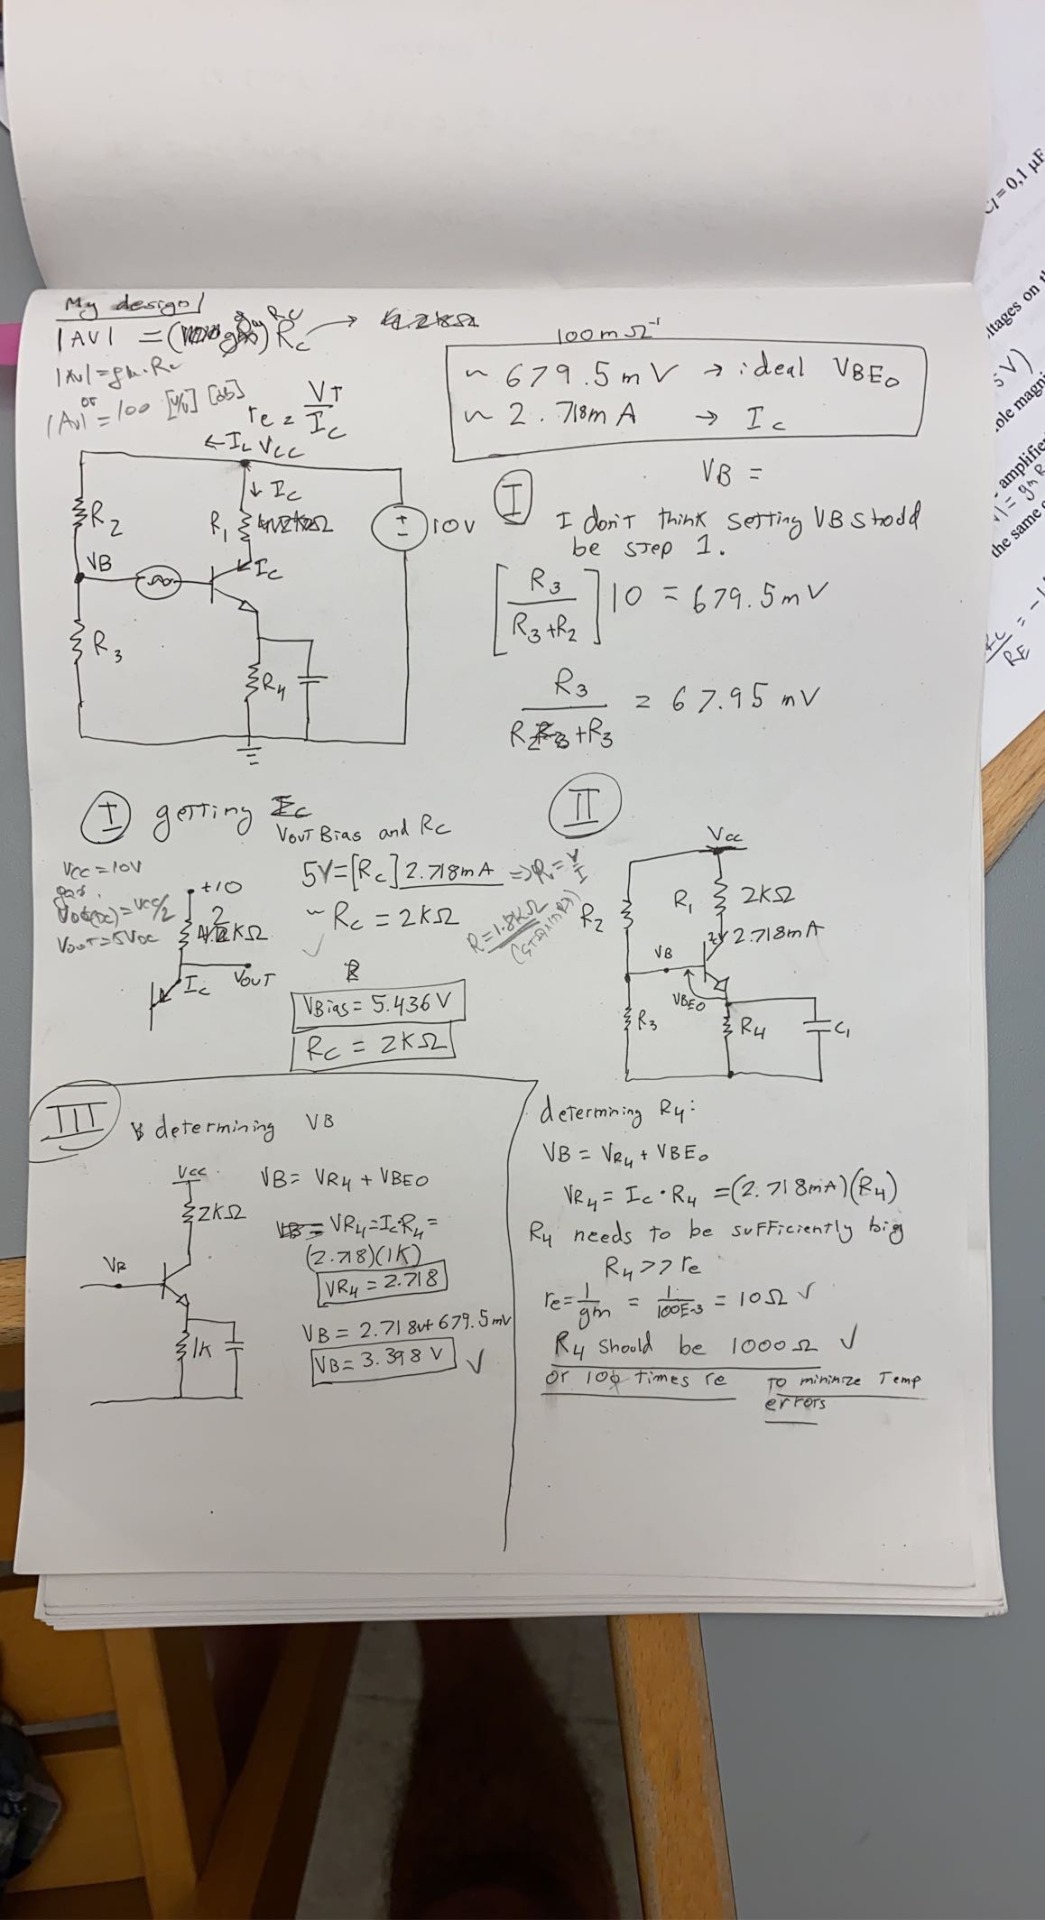 My design
|AV| = ( ) Rc →
|AV| = gm·Rc
or
|AV| = 100 [V/V] [db]
re = VT / Ic
100m Ω⁻¹
~ 679.5mV → ideal VBEo
~ 2.718mA → Ic
VB =
I
I don't think setting VB should
be step 1.
[R3 / (R3+R2)] 10 = 679.5mV
R3 / (R2+R3) = 67.95 mV
Vcc
↓ Ic
R2
R1
10V
VB
Ic
R3
R4
I getting
Vout Bias and Rc
Vcc = 10V
= Vcc/2
Vout = 5VDC
+10
2
KΩ
Ic
Vout
5V = [Rc] 2.718mA ⇒ R = V/I
~ Rc = 2KΩ
R = 1.8KΩ
VBias = 5.436V
Rc = 2KΩ
II
Vcc
R1
2KΩ
R2
2.718mA
VB
VBEO
R3
R4
C1
III determining VB
Vcc
2KΩ
VB
1K
VB = VR4 + VBEO
VR4 = Ic·R4 =
(2.718)(1K)
VR4 = 2.718
VB = 2.718v + 679.5mv
VB = 3.398 V ✓
determining R4:
VB = VR4 + VBEo
VR4 = Ic · R4 = (2.718mA)(R4)
R4 needs to be sufficiently big
R4 >> re
re = 1/gm = 1/100E-3 = 10Ω ✓
R4 should be 1000Ω ✓
or 100 times re to minimze Temp
errors
C1 = 0,1 µF
ltages on t
5V)
ole magni
amplifie
the same
RE